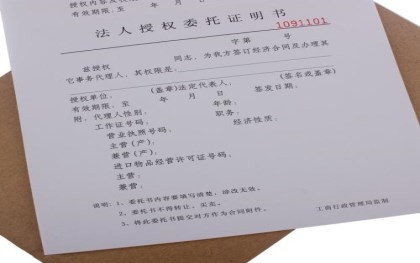 授权内容及权限
有效期限、至 年 月 日
法人授权委托证明书
字第 号 1091101
兹授权 同志，为我方签订经济合同及办理其
它事务代理人，其权限是：
授权单位： (盖章)法定代表人： (签名或盖章)
有效期限、至 年 月 日 签发日期：
附、代理人性别： 年龄： 职务：
工作证号码： 经济性质：
营业执照号码：
主营(产)：
兼营(产)：
进口物品经营许可证号码：
主营：
兼营：
说明：1、委托书内容要填写清楚，涂改无效。
2、委托书不得转让、买卖。
3、将此委托书提交对方作为合同附件。
工商行政管理局监制